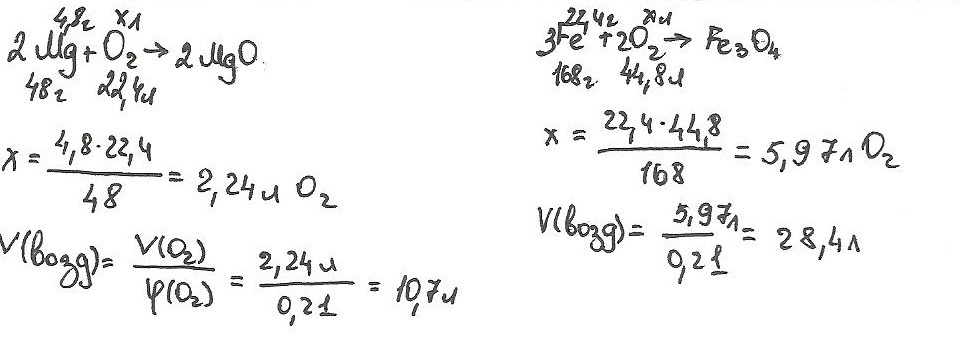 4,8г хл
2Mg + O₂ → 2MgO
48г 22,4л
x = 4,8·22,4 / 48 = 2,24 л O₂
V(возд) = V(O₂) / φ(O₂) = 2,24 л / 0,21 = 10,7 л
22,4г хл
3Fe + 2O₂ → Fe₃O₄
168г 44,8л
x = 22,4·44,8 / 168 = 5,97л O₂
V(возд) = 5,97л / 0,21 = 28,4л